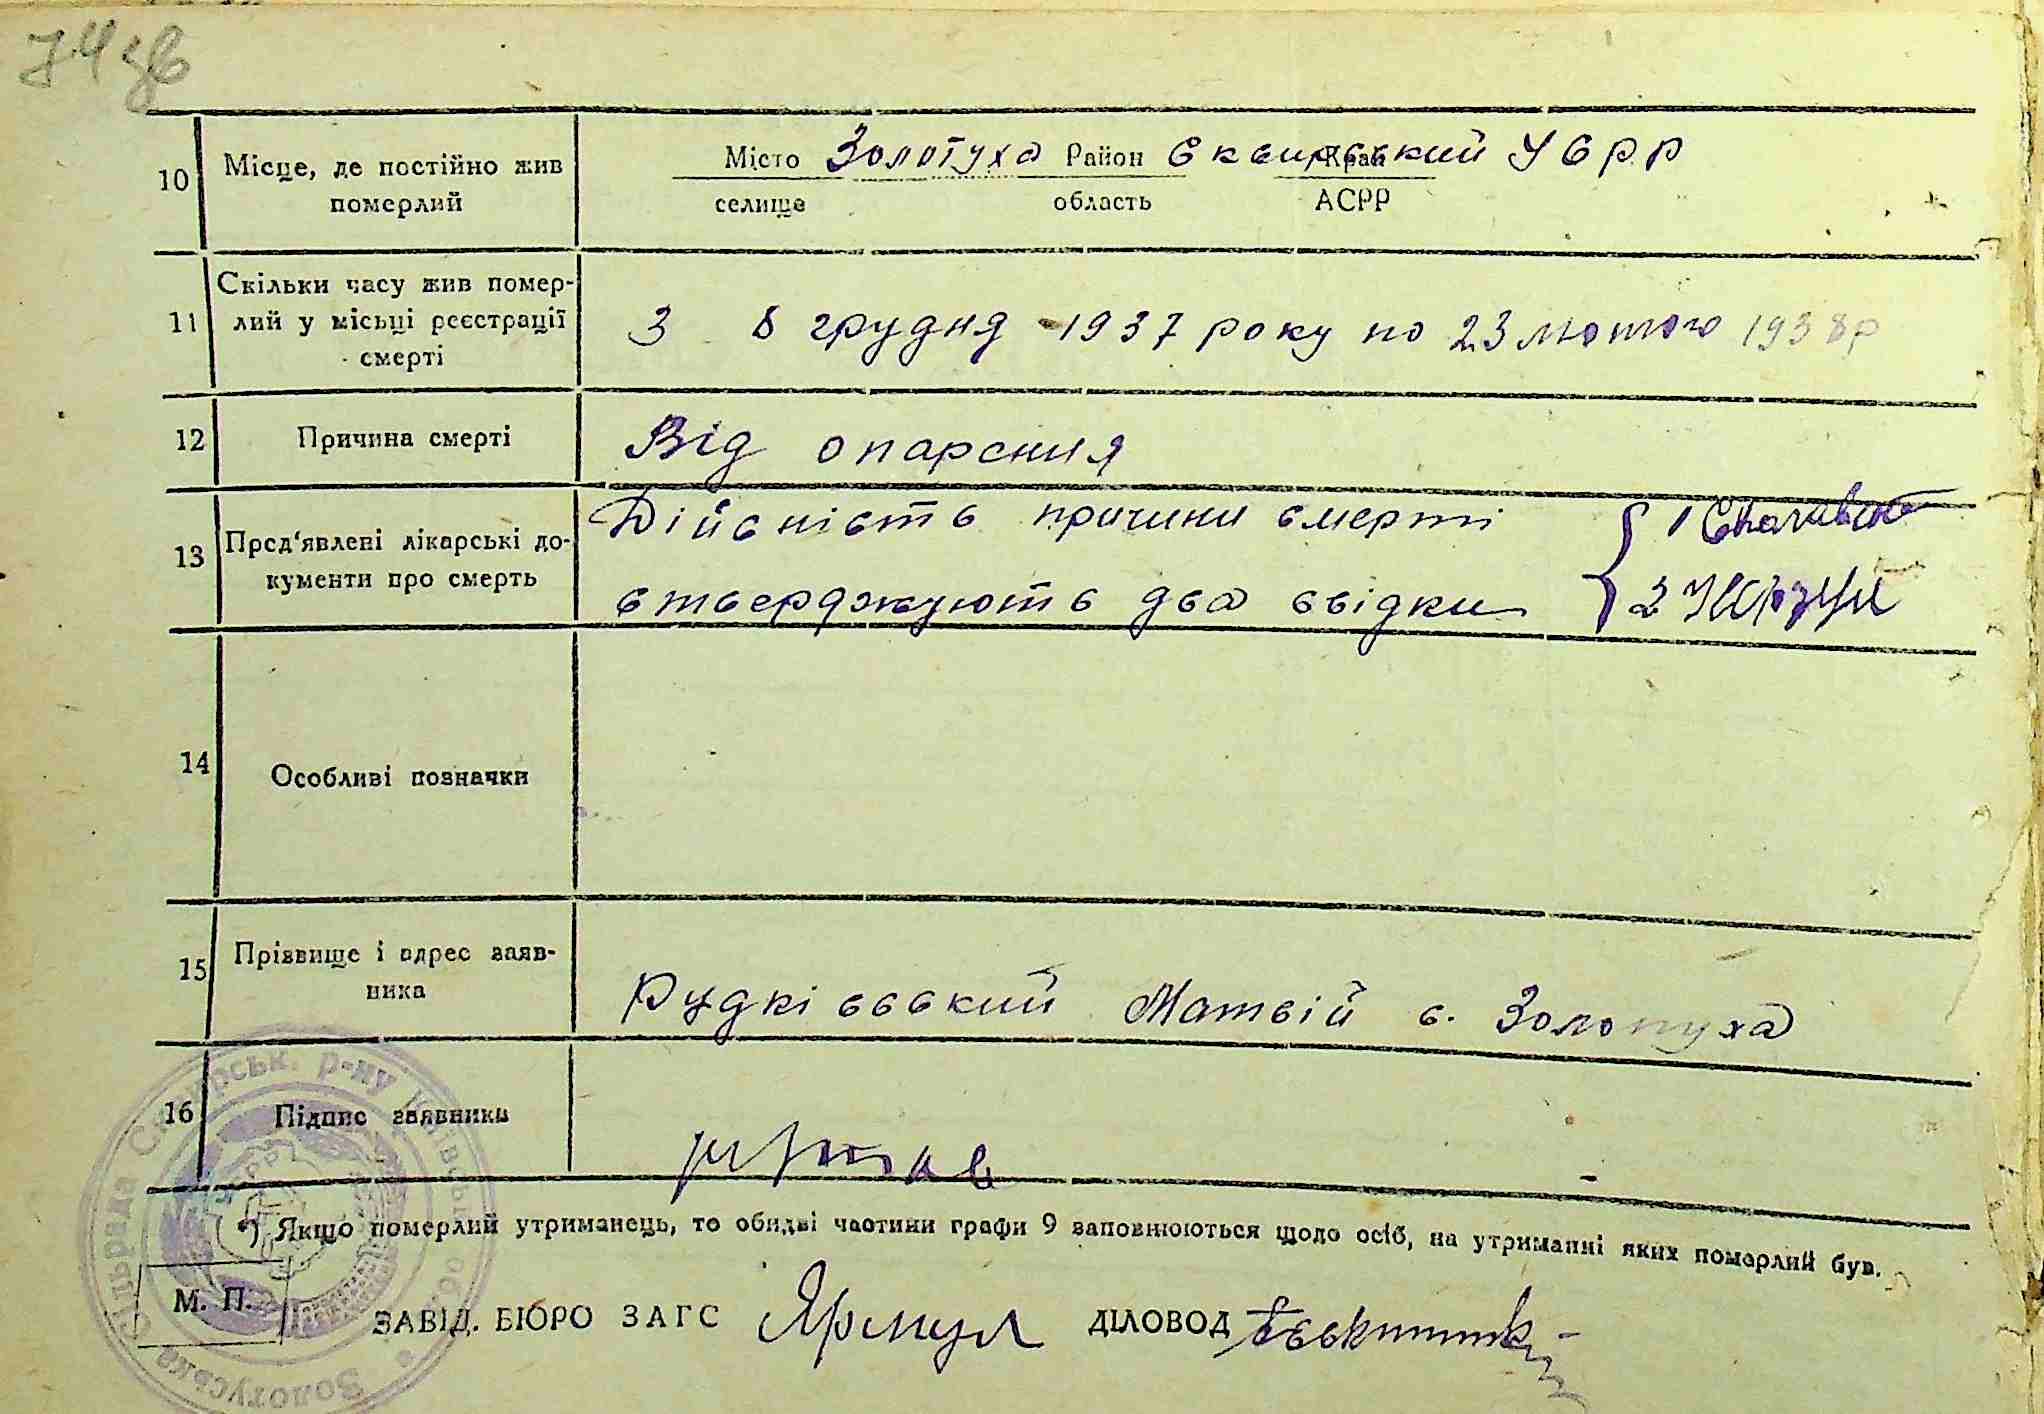 74 зв
10 Місце, де постійно жив померлий
Місто Золотуха Район Сквирський Край УСРР
селище область АСРР
11 Скільки часу жив помер-
лий у місьці реєстрації
смерті
З 8 грудня 1937 року по 23 лютого 1938 р
12 Причина смерті Від опарення
13 Пред'явлені лікарські до-
кументи про смерть
Дійсність причини смерті { 1
стверджують два свідки 2
14 Особливі позначки
15 Прізвище і адрес заяв-
ника
Рудківський Матвій с. Золотуха
16 Підпис заявника
*) Якщо померлий утриманець, то обидві частини графи 9 заповнюються щодо осіб, на утриманні яких померлий був.
М. П.
ЗАВІД. БЮРО ЗАГС Ярмул ДІЛОВОД
Золотуська Сільрада Сквирськ. р-ну Київськ. обл.
УСРР